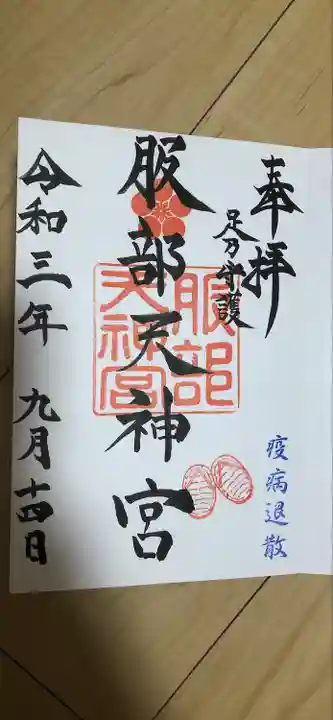 奉拝
足乃守護
疫病退散
服部天神宮
服部
天神宮
令和三年 九月十四日